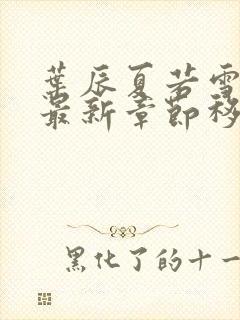 葉辰夏若雪
最新章節移
黑化了的十一